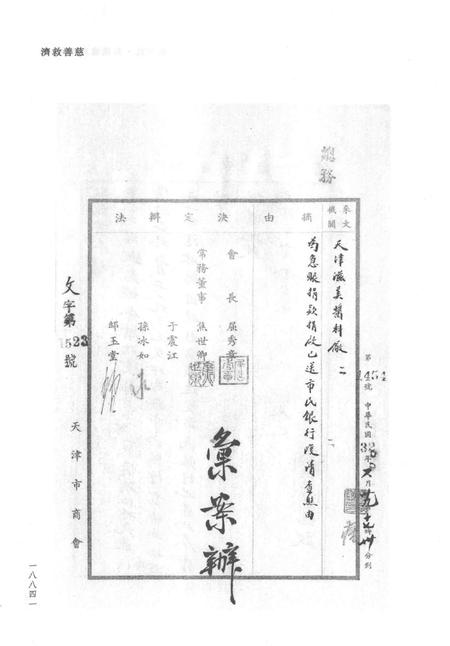 濟救善慈
總務
來文機關
摘由
決定辦法
第1454號 中華民國33年 月 時 分到
天津滋美醬料廠
為急賑捐款捐啟已送市民銀行復請查照由
會長 屈秀章
常務董事 焦世卿
于震江
孫冰如
邸玉堂
彙案辦
文字第1523號
天津市商會
一八八四一